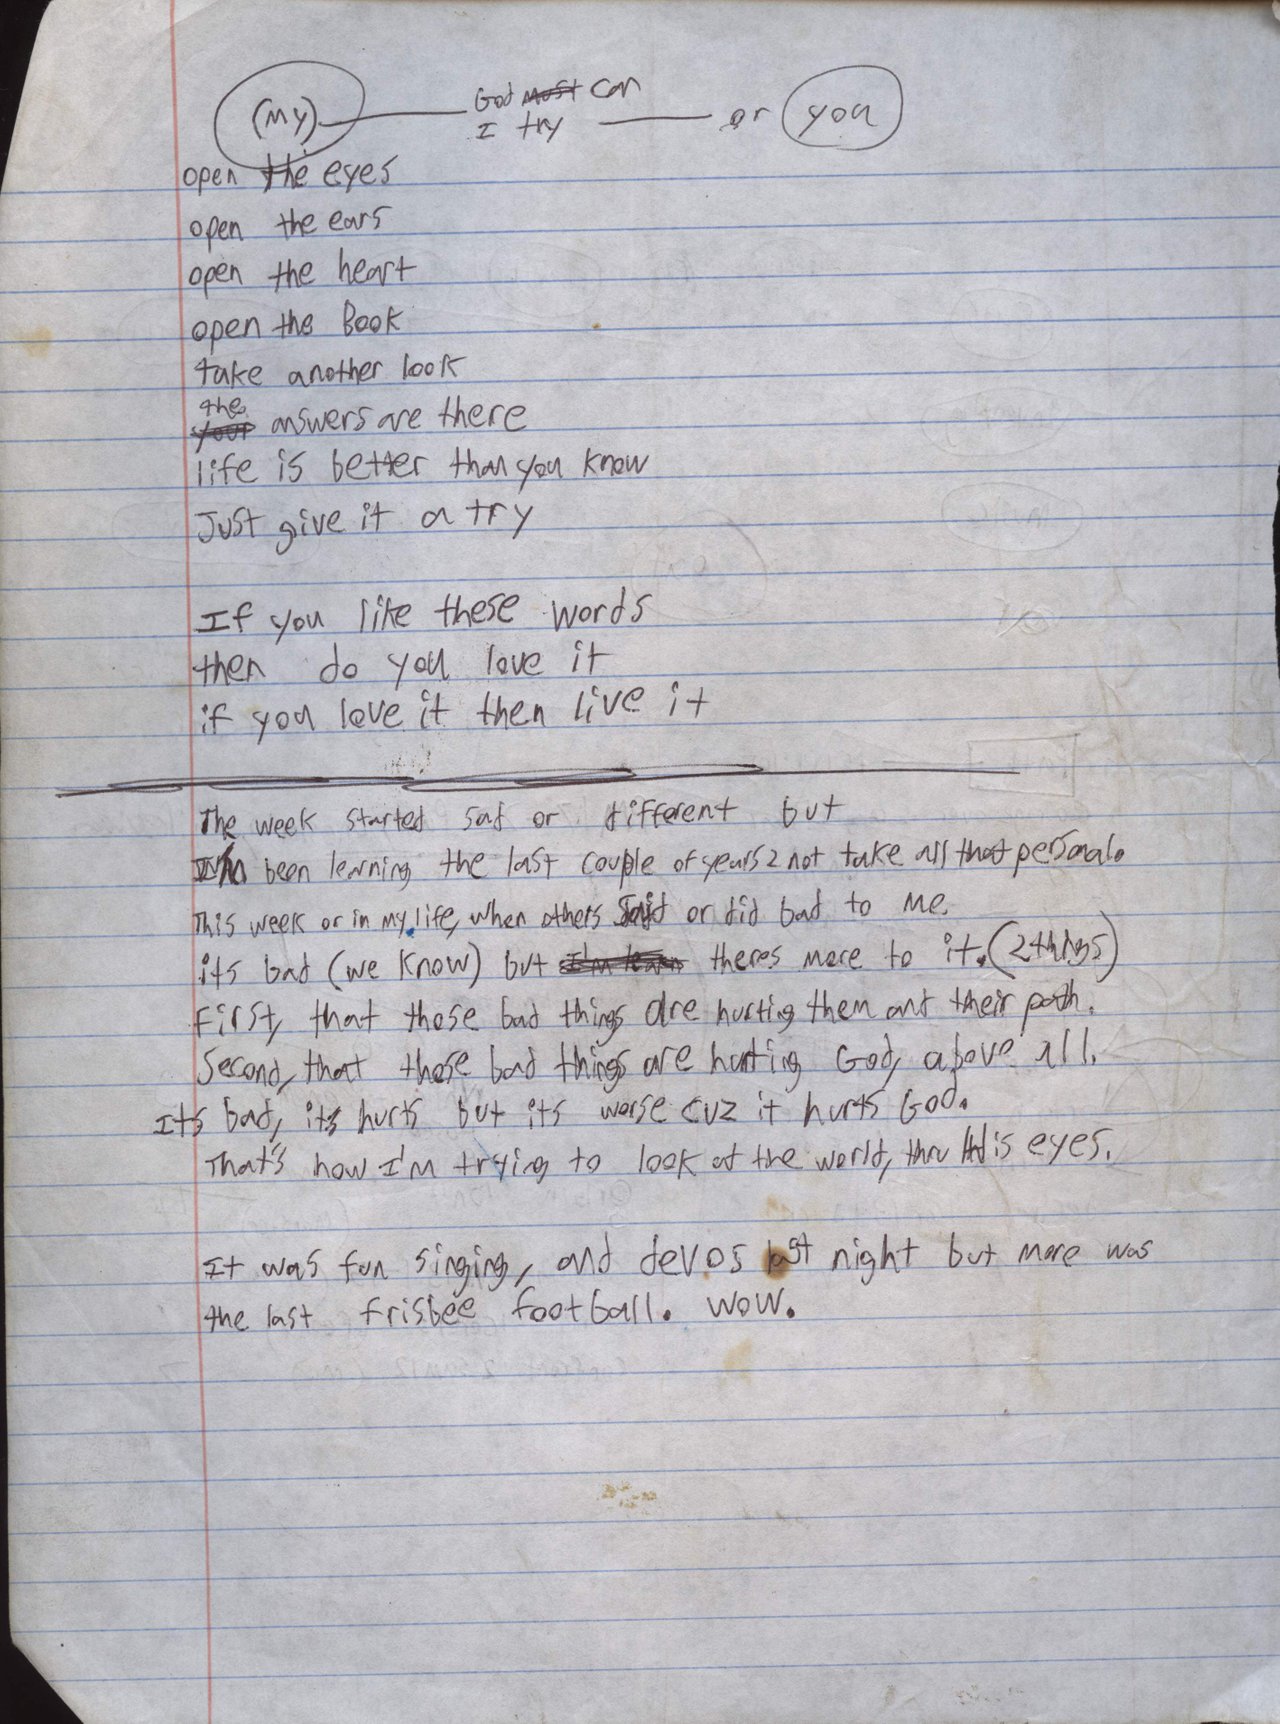 God must can
(My) I try or you
open the eyes
open the ears
open the heart
open the Book
take another look
the
your answers are there
life is better than you know
Just give it a try
If you like these words
then do you love it
if you love it then live it
The week started sad or different but
been learning the last couple of years 2 not take all that personal.
This week or in my life, when others said or did bad to me.
its bad (we know) but I'm learn theres more to it. (2 things)
First, that those bad things are hurting them and their path.
Second, that those bad things are hurting God, above all.
Its bad, its hurts but its worse cuz it hurts God.
That's how I'm trying to look at the world, thru His eyes.
It was fun singing, and devos last night but more was
the last frisbee football. wow.